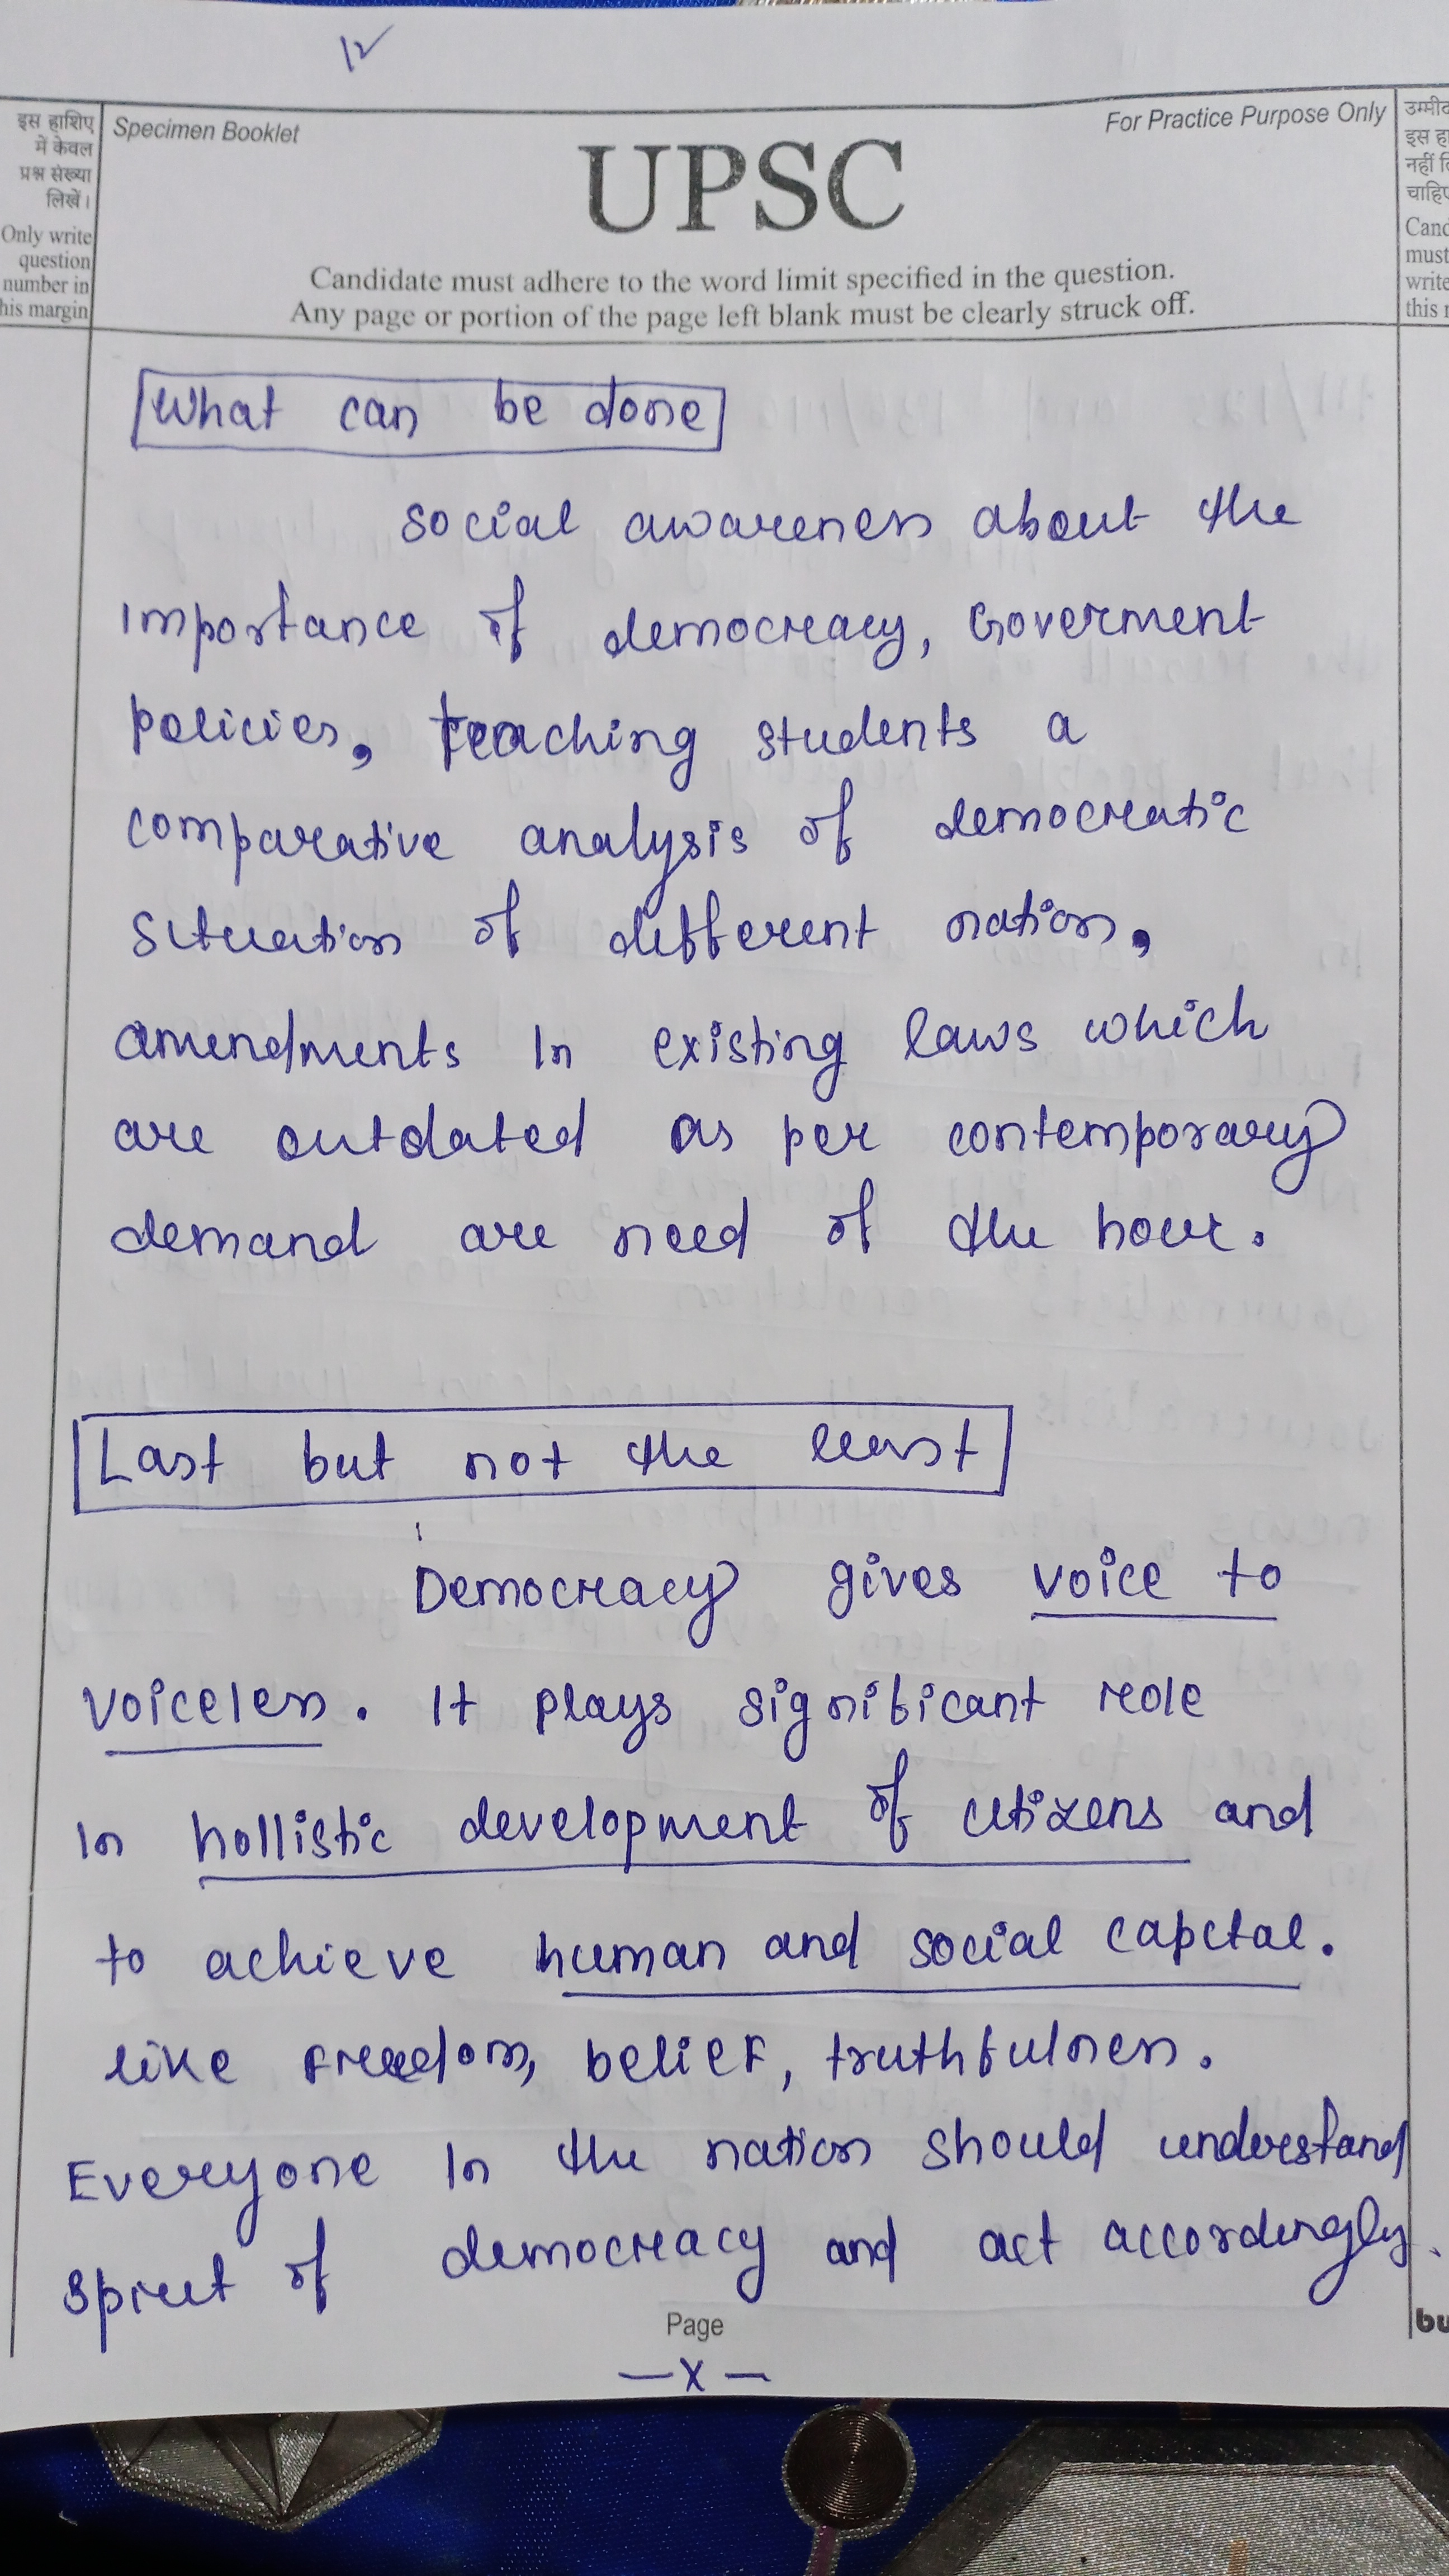 12
इस हाशिए
में केवल
प्रश्न संख्या
लिखें।
Only write
question
number in
his margin
Specimen Booklet
For Practice Purpose Only
UPSC
Candidate must adhere to the word limit specified in the question.
Any page or portion of the page left blank must be clearly struck off.
उम्मीद
इस हा
नहीं लि
चाहिए
Canc
must
write
this r
What can be done
Social awareness about the
importance of democracy, Goverment
policies, teaching students a
comparative analysis of democratic
situation of different nation,
amendments in existing laws which
are outdated as per contemporary
demand are need of the hour.
Last but not the least
Democracy gives voice to
voiceless. It plays significant role
in hollistic development of citizens and
to achieve human and social capital.
like freedom, belief, truthfulness.
Everyone in the nation should understand
spirit of democracy and act accordingly.
Page
bu
—x—